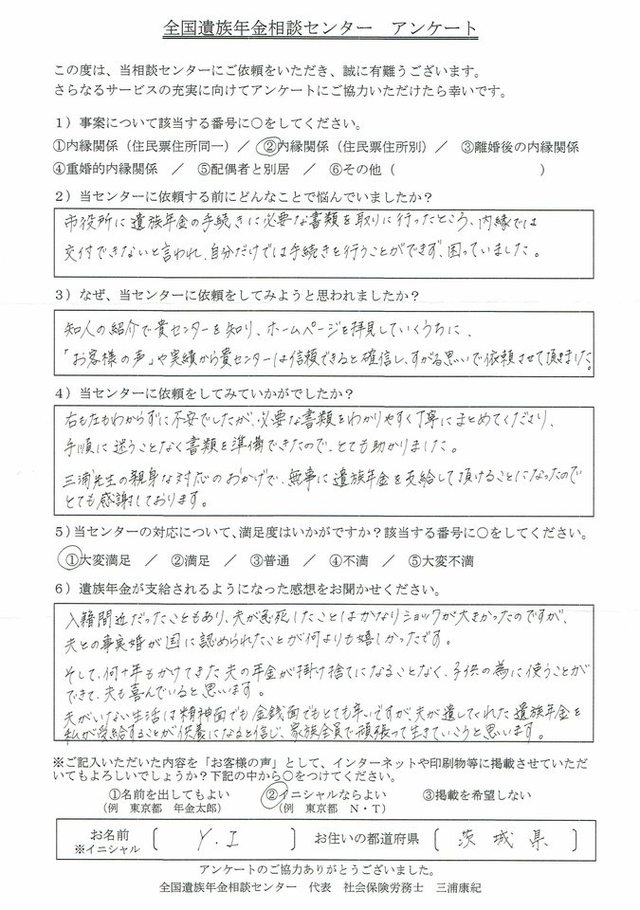 全国遺族年金相談センター　アンケート
この度は、当相談センターにご依頼をいただき、誠に有難うございます。
さらなるサービスの充実に向けてアンケートにご協力いただけたら幸いです。
1）事案について該当する番号に○をしてください。
①内縁関係（住民票住所同一）／　②内縁関係（住民票住所別）／　③離婚後の内縁関係
④重婚的内縁関係　／　⑤配偶者と別居　／　⑥その他（　　　　　　　　　）
2）当センターに依頼する前にどんなことで悩んでいましたか？
市役所に遺族年金の手続きに必要な書類を取りに行ったところ、内縁では
交付できないと言われ、自分だけでは手続きを行うことができず、困っていました。
3）なぜ、当センターに依頼をしてみようと思われましたか？
知人の紹介で貴センターを知り、ホームページを拝見していくうちに、
「お客様の声」や実績から貴センターは信頼できると確信し、すがる思いで依頼させて頂きました。
4）当センターに依頼をしてみていかがでしたか？
右も左もわからずに不安でしたが、必要な書類をわかりやすく丁寧にまとめてくださり、
手順に迷うことなく書類を準備できたので、とても助かりました。
三浦先生の親身な対応のおかげで、無事に遺族年金を支給して頂けることになったので
とても感謝しております。
5）当センターの対応について、満足度はいかがですか？該当する番号に○をしてください。
①大変満足　／　②満足　／　③普通　／　④不満　／　⑤大変不満
6）遺族年金が支給されるようになった感想をお聞かせください。
入籍間近だったこともあり、夫が急死したことはかなりショックが大きかったのですが、
夫との事実婚が国に認められたことが何よりも嬉しかったです。
そして、何十年もかけてきた夫の年金が掛け捨てになることなく、子供の為に使うことが
できて、夫も喜んでいると思います。
夫がいない生活は精神面でも金銭面でもとても辛いですが、夫が遺してくれた遺族年金を
私が受給することが供養になると信じ、家族全員で頑張って生きていこうと思います。
※ご記入いただいた内容を「お客様の声」として、インターネットや印刷物等に掲載させていただ
いてもよろしいでしょうか？下記の中から○をつけてください。
①名前を出してもよい　②イニシャルならよい　③掲載を希望しない
（例　東京都　年金太郎）　（例　東京都　N・T）
お名前　〔　Y.I　〕　お住いの都道府県　〔　茨城県　〕
※イニシャル
アンケートのご協力ありがとうございました。
全国遺族年金相談センター　代表　社会保険労務士　三浦康紀